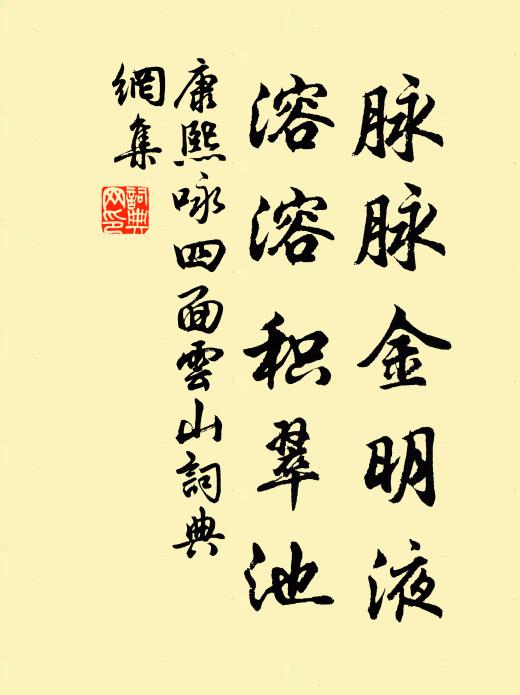 脉脉金明液
溶溶积翠池
康熙咏四面雲山詞典
網集
詞典
网印